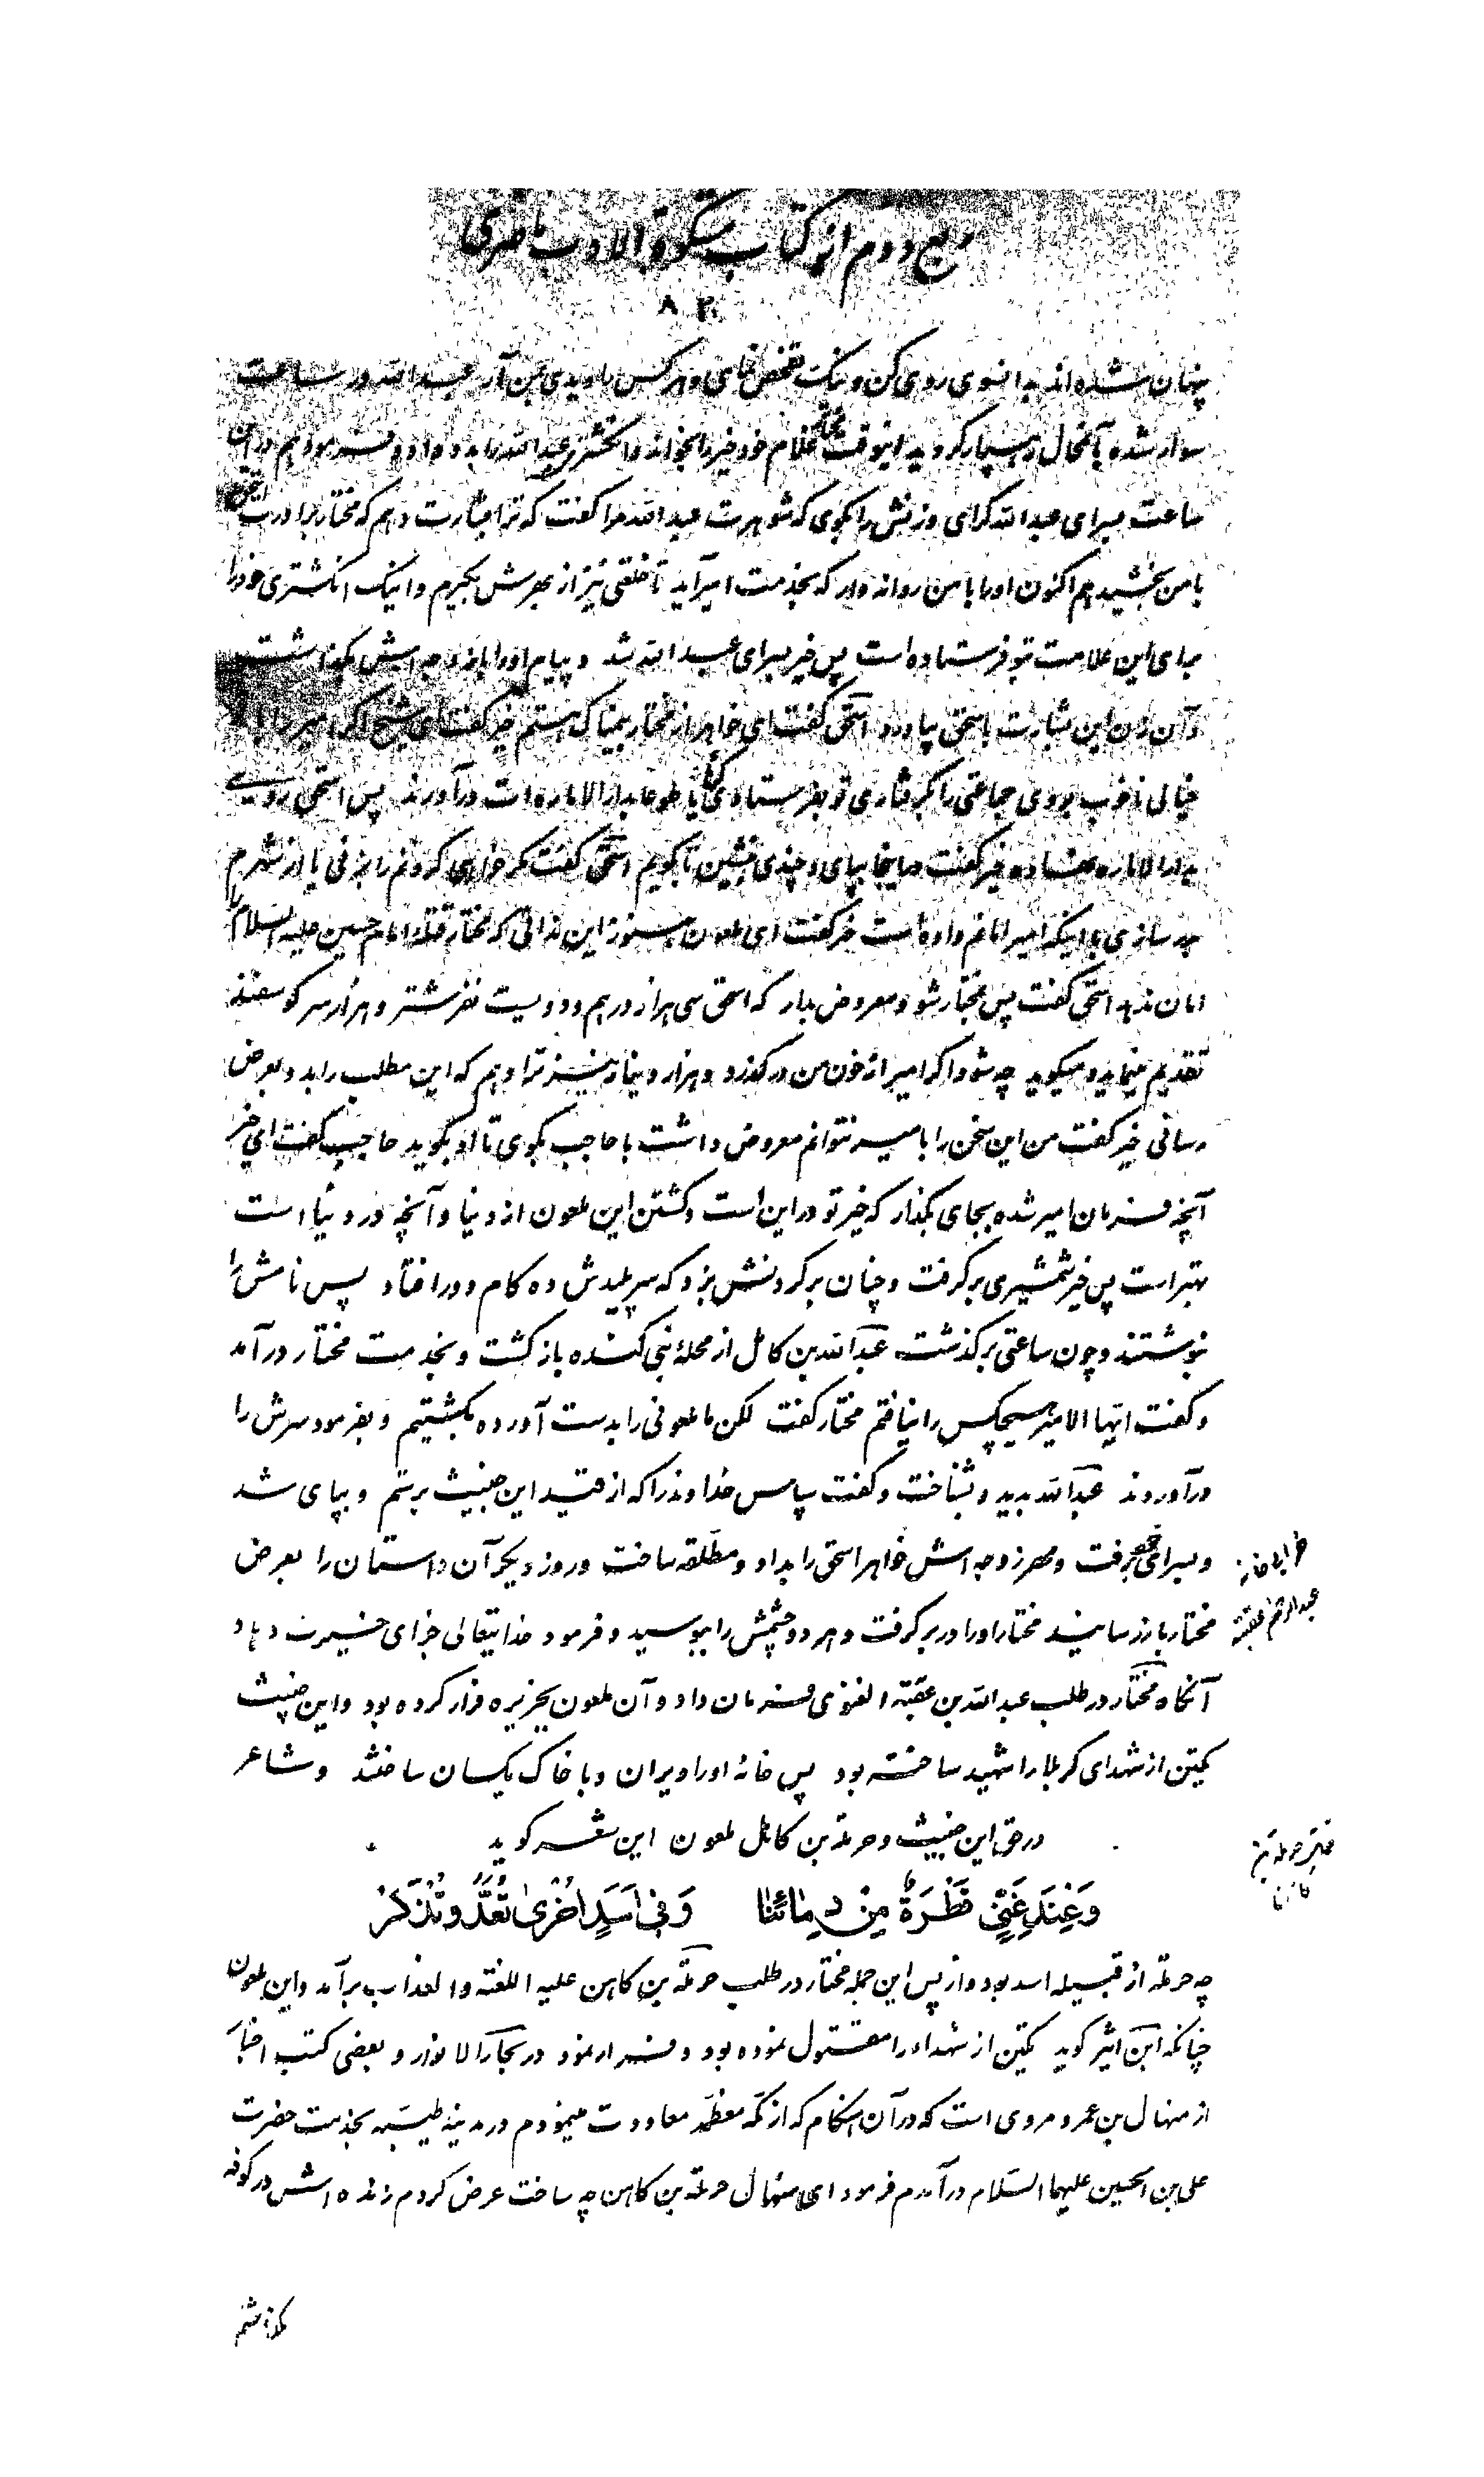 ربع دوم از کتاب مشکوة الادب ناصری
۸۲
پنهان شده‌اند بدانسوی روی کن و نیک تفحص نمای و هر کس را دیدی بمن آر عبدالله در ساعت
سوار شده با آنحال رهسپار گردید اینوقت مختار غلام خود خیر را بخواند و انگشتری عبدالله را بدو داد و فرمود هم در این
ساعت بسرای عبدالله گرای و زنش را بگوی که شوهرت عبدالله مرا گفت که ترا بشارت دهم که مختار برادرت اسحق
با من بخشید هم اکنون او را با من روانه دار که بخدمت امیر آید تا خلعتی نیز از بهرش بگیرم و اینک انگشتری خود را
برای این علامت بتو فرستاده است پس خیر بسرای عبدالله شد و پیام او را با زوجه‌اش بگذاشت
و آن زن این بشارت باسحق بیاورد اسحق گفت ای خواهر از مختار بیمناک هستم خیر گفت ای شیخ اگر امیر را با تو
خیالی ناخوب بودی جماعتی را بگرفتاری تو بفرستادی تا بدار الاماره‌ات درآورند پس اسحق روی
بدار الاماره نهاد خیر گفت در اینجا بپای و چندی بنشین تا بگویم اسحق گفت مگر خواهی گردنم را بزنی یا از شهرم
بدر سازی با اینکه امیر امانم داده است خیر گفت ای ملعون هنوز این ندانی که مختار قتله امام حسین علیه السلام را
امان ندهد اسحق گفت پس بمختار شو و معروض بدار که اسحق سی هزار درهم و دویست نفر شتر و هزار سر گوسفند
تقدیم مینماید و میگوید چه شود اگر امیر از خون من درگذرد و هزار دینار نیز ترا دهم که این مطلب را بدو بعرض
رسانی خیر گفت من این سخن را با امیر نتوانم معروض داشت با حاجب بگوی تا او بگوید حاجب گفت ای خیر
آنچه فرمان امیر شده بجای بگذار که خیر تو در این است و کشتن این ملعون از دنیا و آنچه در دنیا است
بهتر است پس خیر شمشیری برگرفت و چنان برگردنش بزد که سر پلیدش ده گام دور افتاد پس نامش را
بنوشتند و چون ساعتی برگذشت عبدالله بن کامل از محله بنی کنده بازگشت و بخدمت مختار درآمد
و گفت ایها الامیر هیچکس را نیافتم مختار گفت لکن ما ملعونی را بدست آورده بکشتیم و بفرمود سرش را
درآوردند عبدالله بدید و بشناخت و گفت سپاس خداوند را که از قید این خبیث برستم و بپای شد
و بسرای خود برفت و مهر زوجه‌اش خواهر اسحق را بداد و مطلقه ساخت و روز دیگر آن داستان را بعرض
مختار بازرسانید مختار او را در بر گرفت و هر دو چشمش را ببوسید و فرمود خدایتعالی جزای خیرت دهاد
خرابی خانه
عبدالله بن عقبه
آنگاه مختار در طلب عبدالله بن عقبة الغنوی فرمان داد و آن ملعون بجزیره فرار کرده بود و این خبیث
یکتن از شهدای کربلا را شهید ساخته بود پس خانه او را ویران و با خاک یکسان ساختند و شاعر
در حق این خبیث و حرملة بن کاهل ملعون این شعر گوید
وَعِنْدَ غَنِیٍّ قَطْرَةٌ مِنْ دِمائِنا وَفی اَسَدٍ اُخْریٰ تُعَدُّ وَتُذْکَرُ
چه حرمله از قبیله اسد بود و از پس این جمله مختار در طلب حرملة بن کاهن علیه اللعنة و العذاب برآمد و این ملعون
چنانکه ابن اثیر گوید یکتن از شهداء را مقتول نموده بود و فرار نمود در بحار الانوار و بعضی کتب اخبار
از منهال بن عمرو مروی است که در آن هنگام که از مکه معظمه معاودت مینمودم در مدینه طیبه بخدمت حضرت
علی بن الحسین علیهما السلام درآمدم فرمود ای منهال حرملة بن کاهن چه ساخت عرض کردم زنده‌اش در کوفه
بگذاشتم